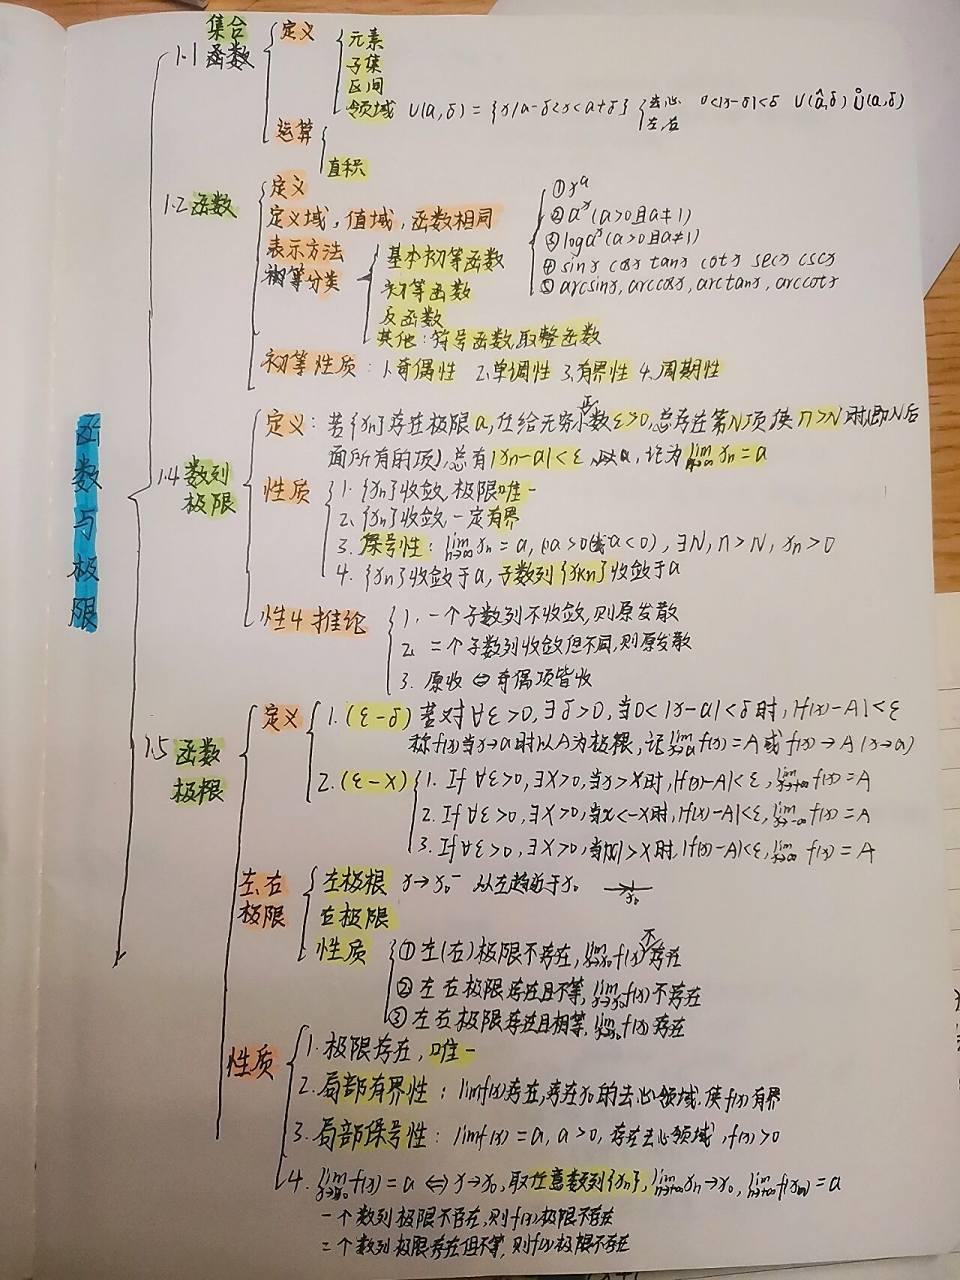 函数与极限
1.1 集合 函数
定义
元素
子集
区间
领域 U(a,δ)={x|a-δ<x<a+δ} 去心 0<|x-a|<δ Ů(a,δ)
左,右
运算
直积
1.2 函数
定义
定义域,值域,函数相同
表示方法
初等分类
基本初等函数
①x^a
②a^x(a>0且a≠1)
③log a^x(a>0且a≠1)
④sinx cosx tanx cotx secx cscx
⑤arcsinx, arccosx, arctanx, arccotx
初等函数
反函数
其他:符号函数,取整函数
初等性质:1.奇偶性 2.单调性 3.有界性 4.周期性
1.4 数列极限
定义:若{xn}存在极限a,任给无穷小正数ε>0,总存在第N项,使n>N时,(即N后
面所有的项),总有|xn-a|<ε 记为 lim n→∞ xn=a
性质
1. {xn}收敛,极限唯一
2. {xn}收敛,一定有界
3. 保号性: lim n→∞ xn=a, (a>0(或a<0), ∃N, n>N, xn>0
4. {xn}收敛于a,子数列{xkn}收敛于a
性4推论
1. 一个子数列不收敛,则原发散
2. 二个子数列收敛但不同,则原发散
3. 原收⇔奇偶项皆收
1.5 函数极限
定义
1. (ε-δ) 若对∀ε>0, ∃δ>0, 当0<|x-a|<δ时, |f(x)-A|<ε
称f(x)当x→a时以A为极限,记lim x→a f(x)=A或f(x)→A(x→a)
2. (ε-X)
1. If ∀ε>0, ∃X>0,当x>X时,|f(x)-A|<ε, lim x→+∞ f(x)=A
2. If ∀ε>0, ∃X>0,当x<-X时,|f(x)-A|<ε, lim x→-∞ f(x)=A
3. If ∀ε>0, ∃X>0,当|x|>X时,|f(x)-A|<ε, lim x→∞ f(x)=A
左、右极限
左极限 x→x0⁻ 从左趋近于x0 x0
右极限
性质
①左(右)极限不存在, lim x→x0 f(x)不存在
②左右极限存在且不等, lim x→x0 f(x)不存在
③左右极限存在且相等, lim x→x0 f(x)存在
性质
1. 极限存在,唯一
2. 局部有界性: limf(x)存在,存在x0的去心领域,使f(x)有界
3. 局部保号性: limf(x)=a, a>0, 存在去心领域, f(x)>0
4. lim x→x0 f(x)=a ⇔ x→x0, 取任意数列{xn}, lim n→∞ xn→x0, lim n→∞ f(xn)=a
一个数列极限不存在,则f(x)极限不存在
二个数列极限存在但不等,则f(x)极限不存在